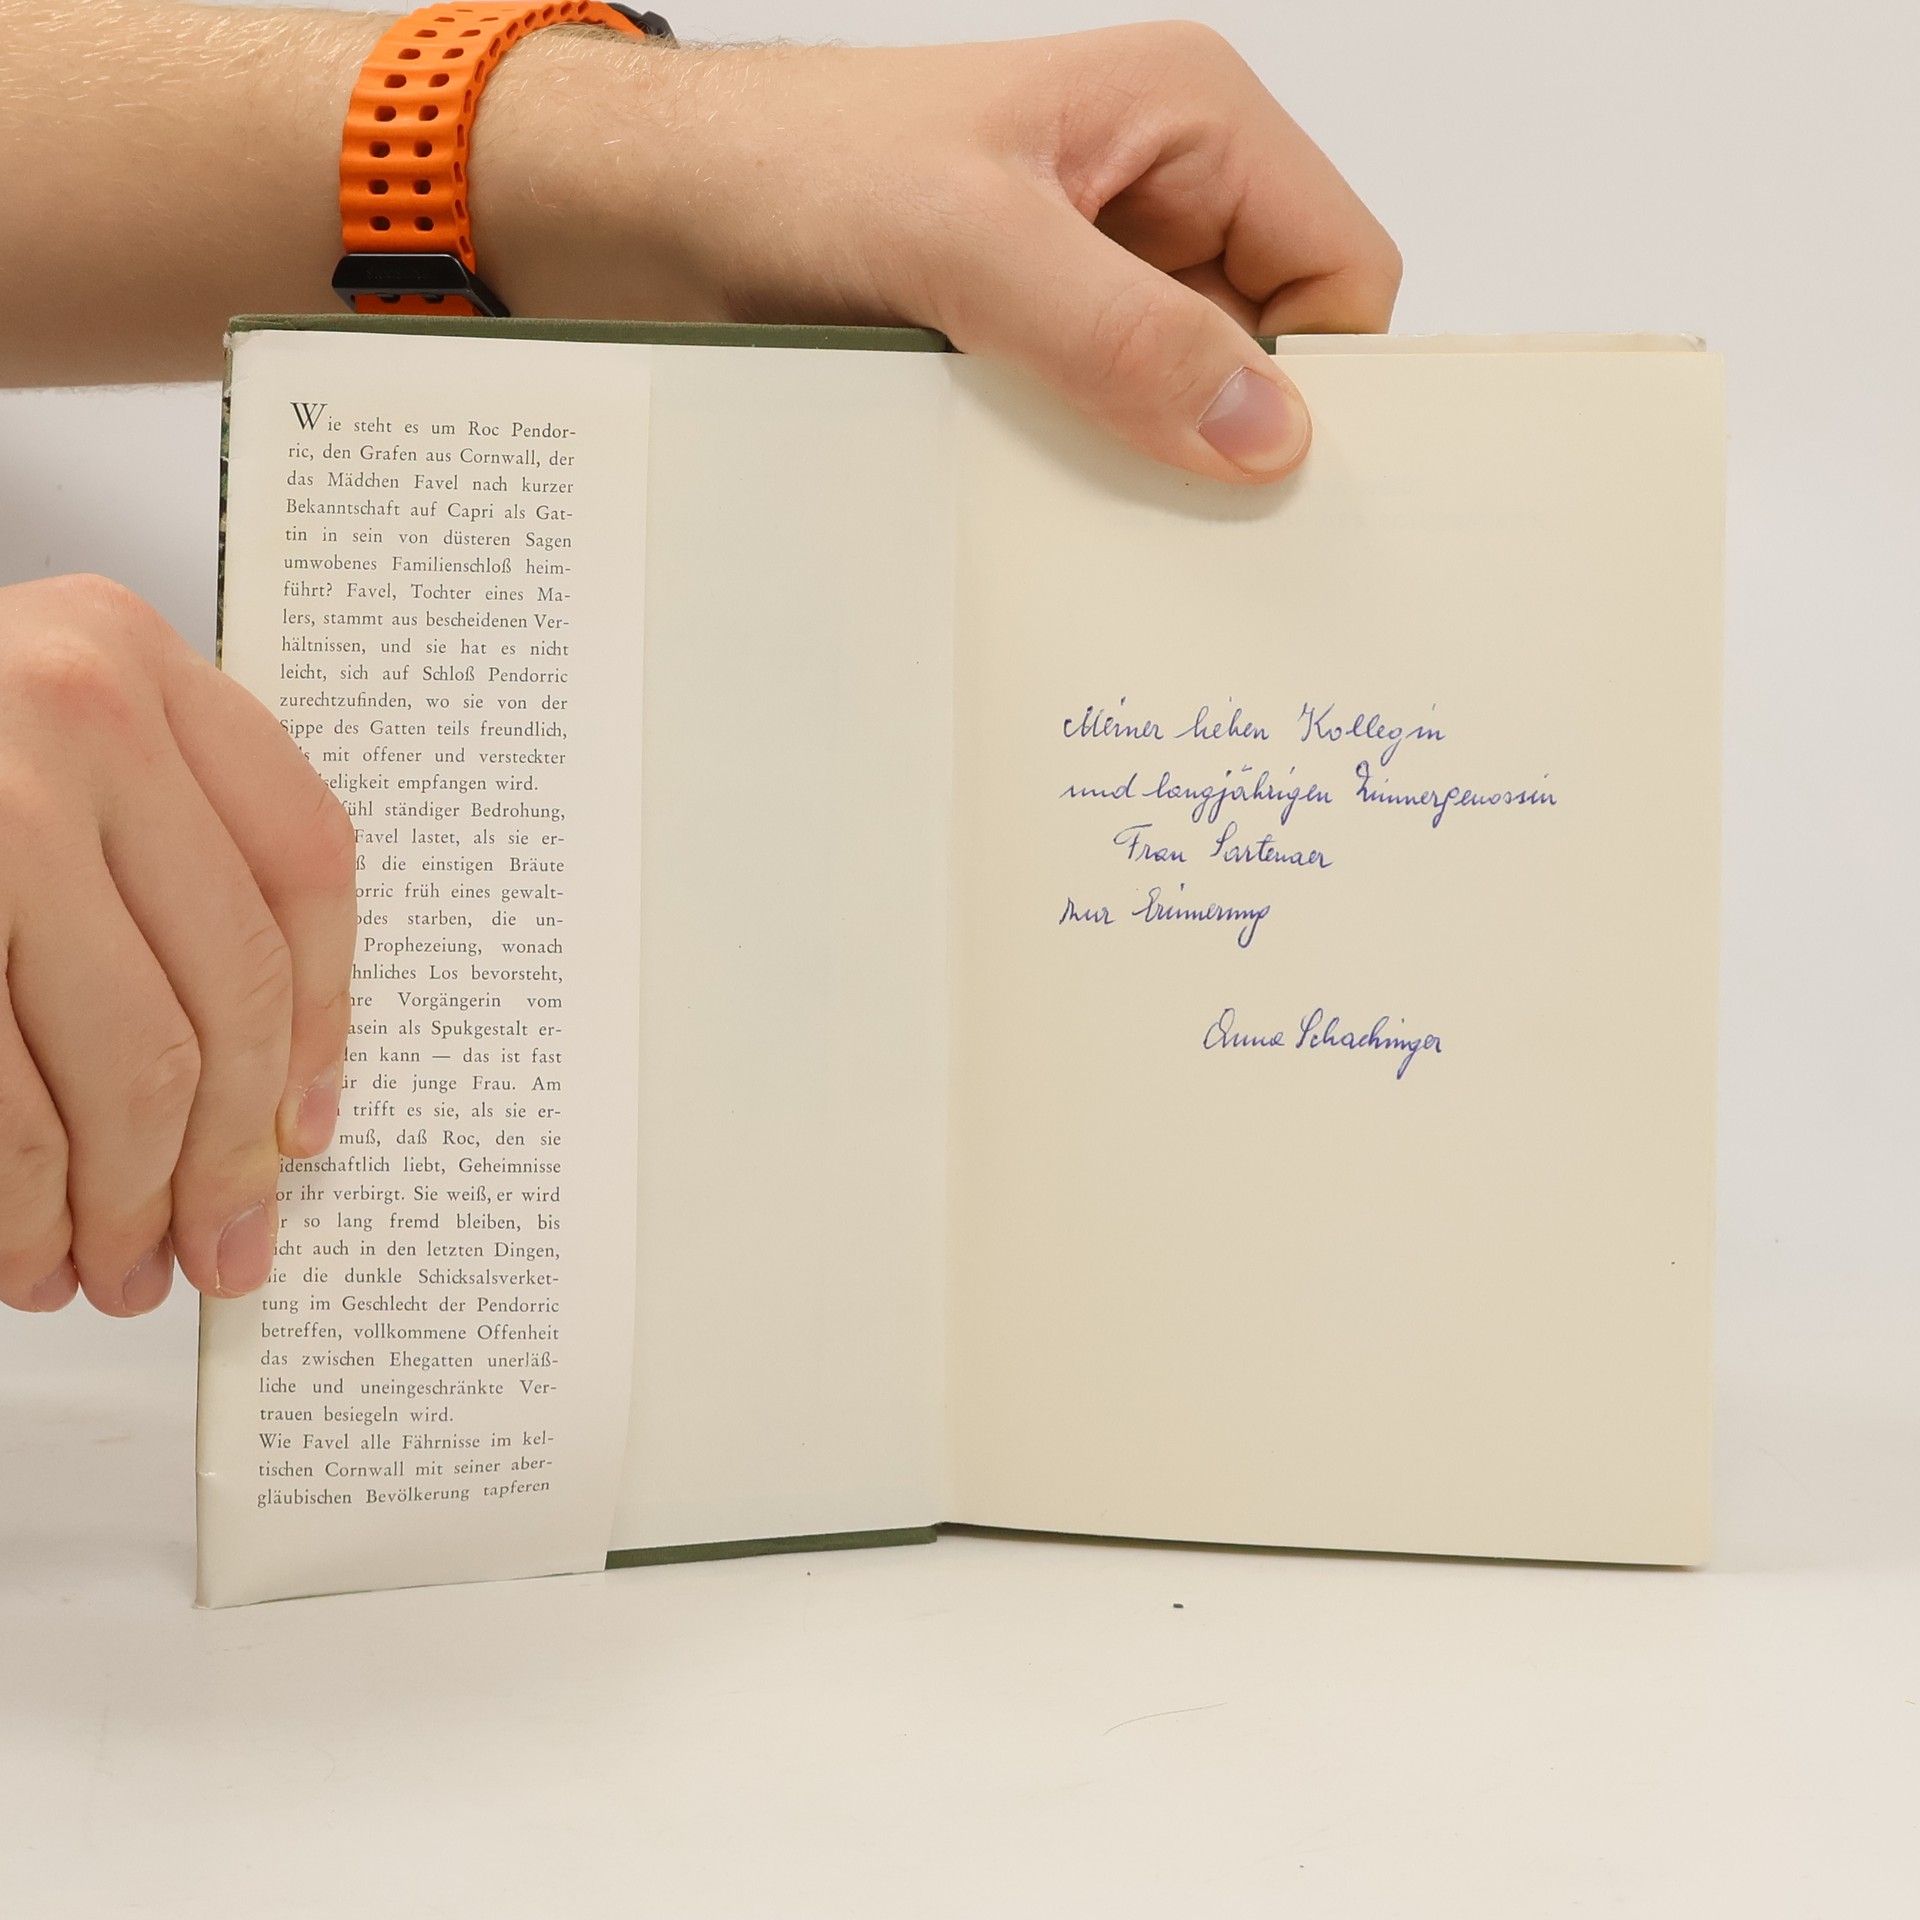 Wie steht es um Roc Pendor-
ric, den Grafen aus Cornwall, der
das Mädchen Favel nach kurzer
Bekanntschaft auf Capri als Gat-
tin in sein von düsteren Sagen
umwobenes Familienschloß heim-
führt? Favel, Tochter eines Ma-
lers, stammt aus bescheidenen Ver-
hältnissen, und sie hat es nicht
leicht, sich auf Schloß Pendorric
zurechtzufinden, wo sie von der
Sippe des Gatten teils freundlich,
mit offener und versteckter
seligkeit empfangen wird.
ständiger Bedrohung,
Favel lastet, als sie er-
die einstigen Bräute
früh eines gewalt-
starben, die un-
Prophezeiung, wonach
Los bevorsteht,
Vorgängerin vom
als Spukgestalt er-
kann — das ist fast
die junge Frau. Am
trifft es sie, als sie er-
muß, daß Roc, den sie
idenschaftlich liebt, Geheimnisse
or ihr verbirgt. Sie weiß, er wird
r so lang fremd bleiben, bis
icht auch in den letzten Dingen,
die die dunkle Schicksalsverket-
tung im Geschlecht der Pendorric
betreffen, vollkommene Offenheit
das zwischen Ehegatten unerläß-
liche und uneingeschränkte Ver-
trauen besiegeln wird.
Wie Favel alle Fährnisse im kel-
tischen Cornwall mit seiner aber-
gläubischen Bevölkerung tapferen
Meiner lieben Kollegin
und langjährigen Zimmergenossin
Frau Sartenaer
zur Erinnerung
Anna Schachinger